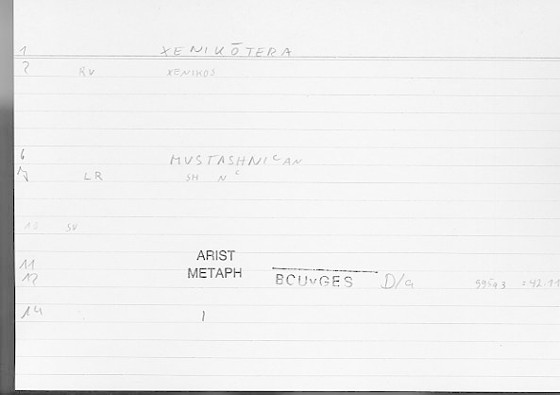 1 XENIKŌTERA
2 RV XENIKOS
6 MUSTASHNICAN
LR SH N C
10 SV
11 ARIST
12 METAPH BOUYGES D/a
14 1